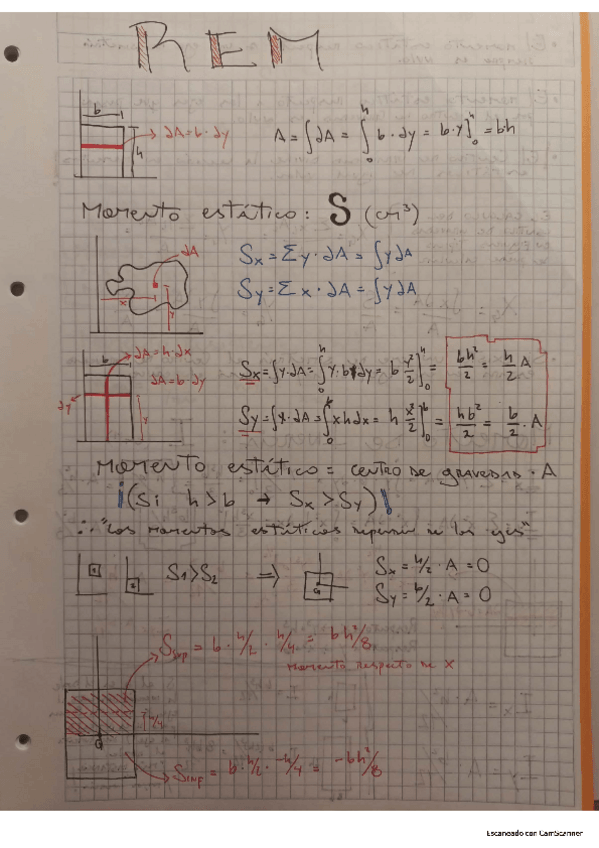 REM
b
dA = b · dy
h
A = ∫dA = ∫₀ʰ b · dy = b · y]₀ʰ = bh
Momento estático: S (cm³)
dA
x
y
Sx = Σ y · dA = ∫ y dA
Sy = Σ x · dA = ∫ y dA
b
dA = h · dx
dA = b · dy
dy
y
Sx = ∫ y · dA = ∫₀ʰ y · b · dy = b y²/2]₀ʰ = bh²/2 = h/2 A
Sy = ∫ x · dA = ∫₀ᵇ x h dx = h x²/2]₀ᵇ = hb²/2 = b/2 · A
Momento estático = centro de gravedad · A
¡(Si h > b → Sx > Sy)!
∴ "Los momentos estáticos dependen de los ejes"
1
2
S1 > S2 ⇒
G
Sx = h/2 · A = 0
Sy = b/2 · A = 0
Ssup = b · h/2 · h/4 = bh²/8
momento respecto de x
h/4
G
Sinf = b · h/2 · -h/4 = -bh²/8
Escaneado con CamScanner